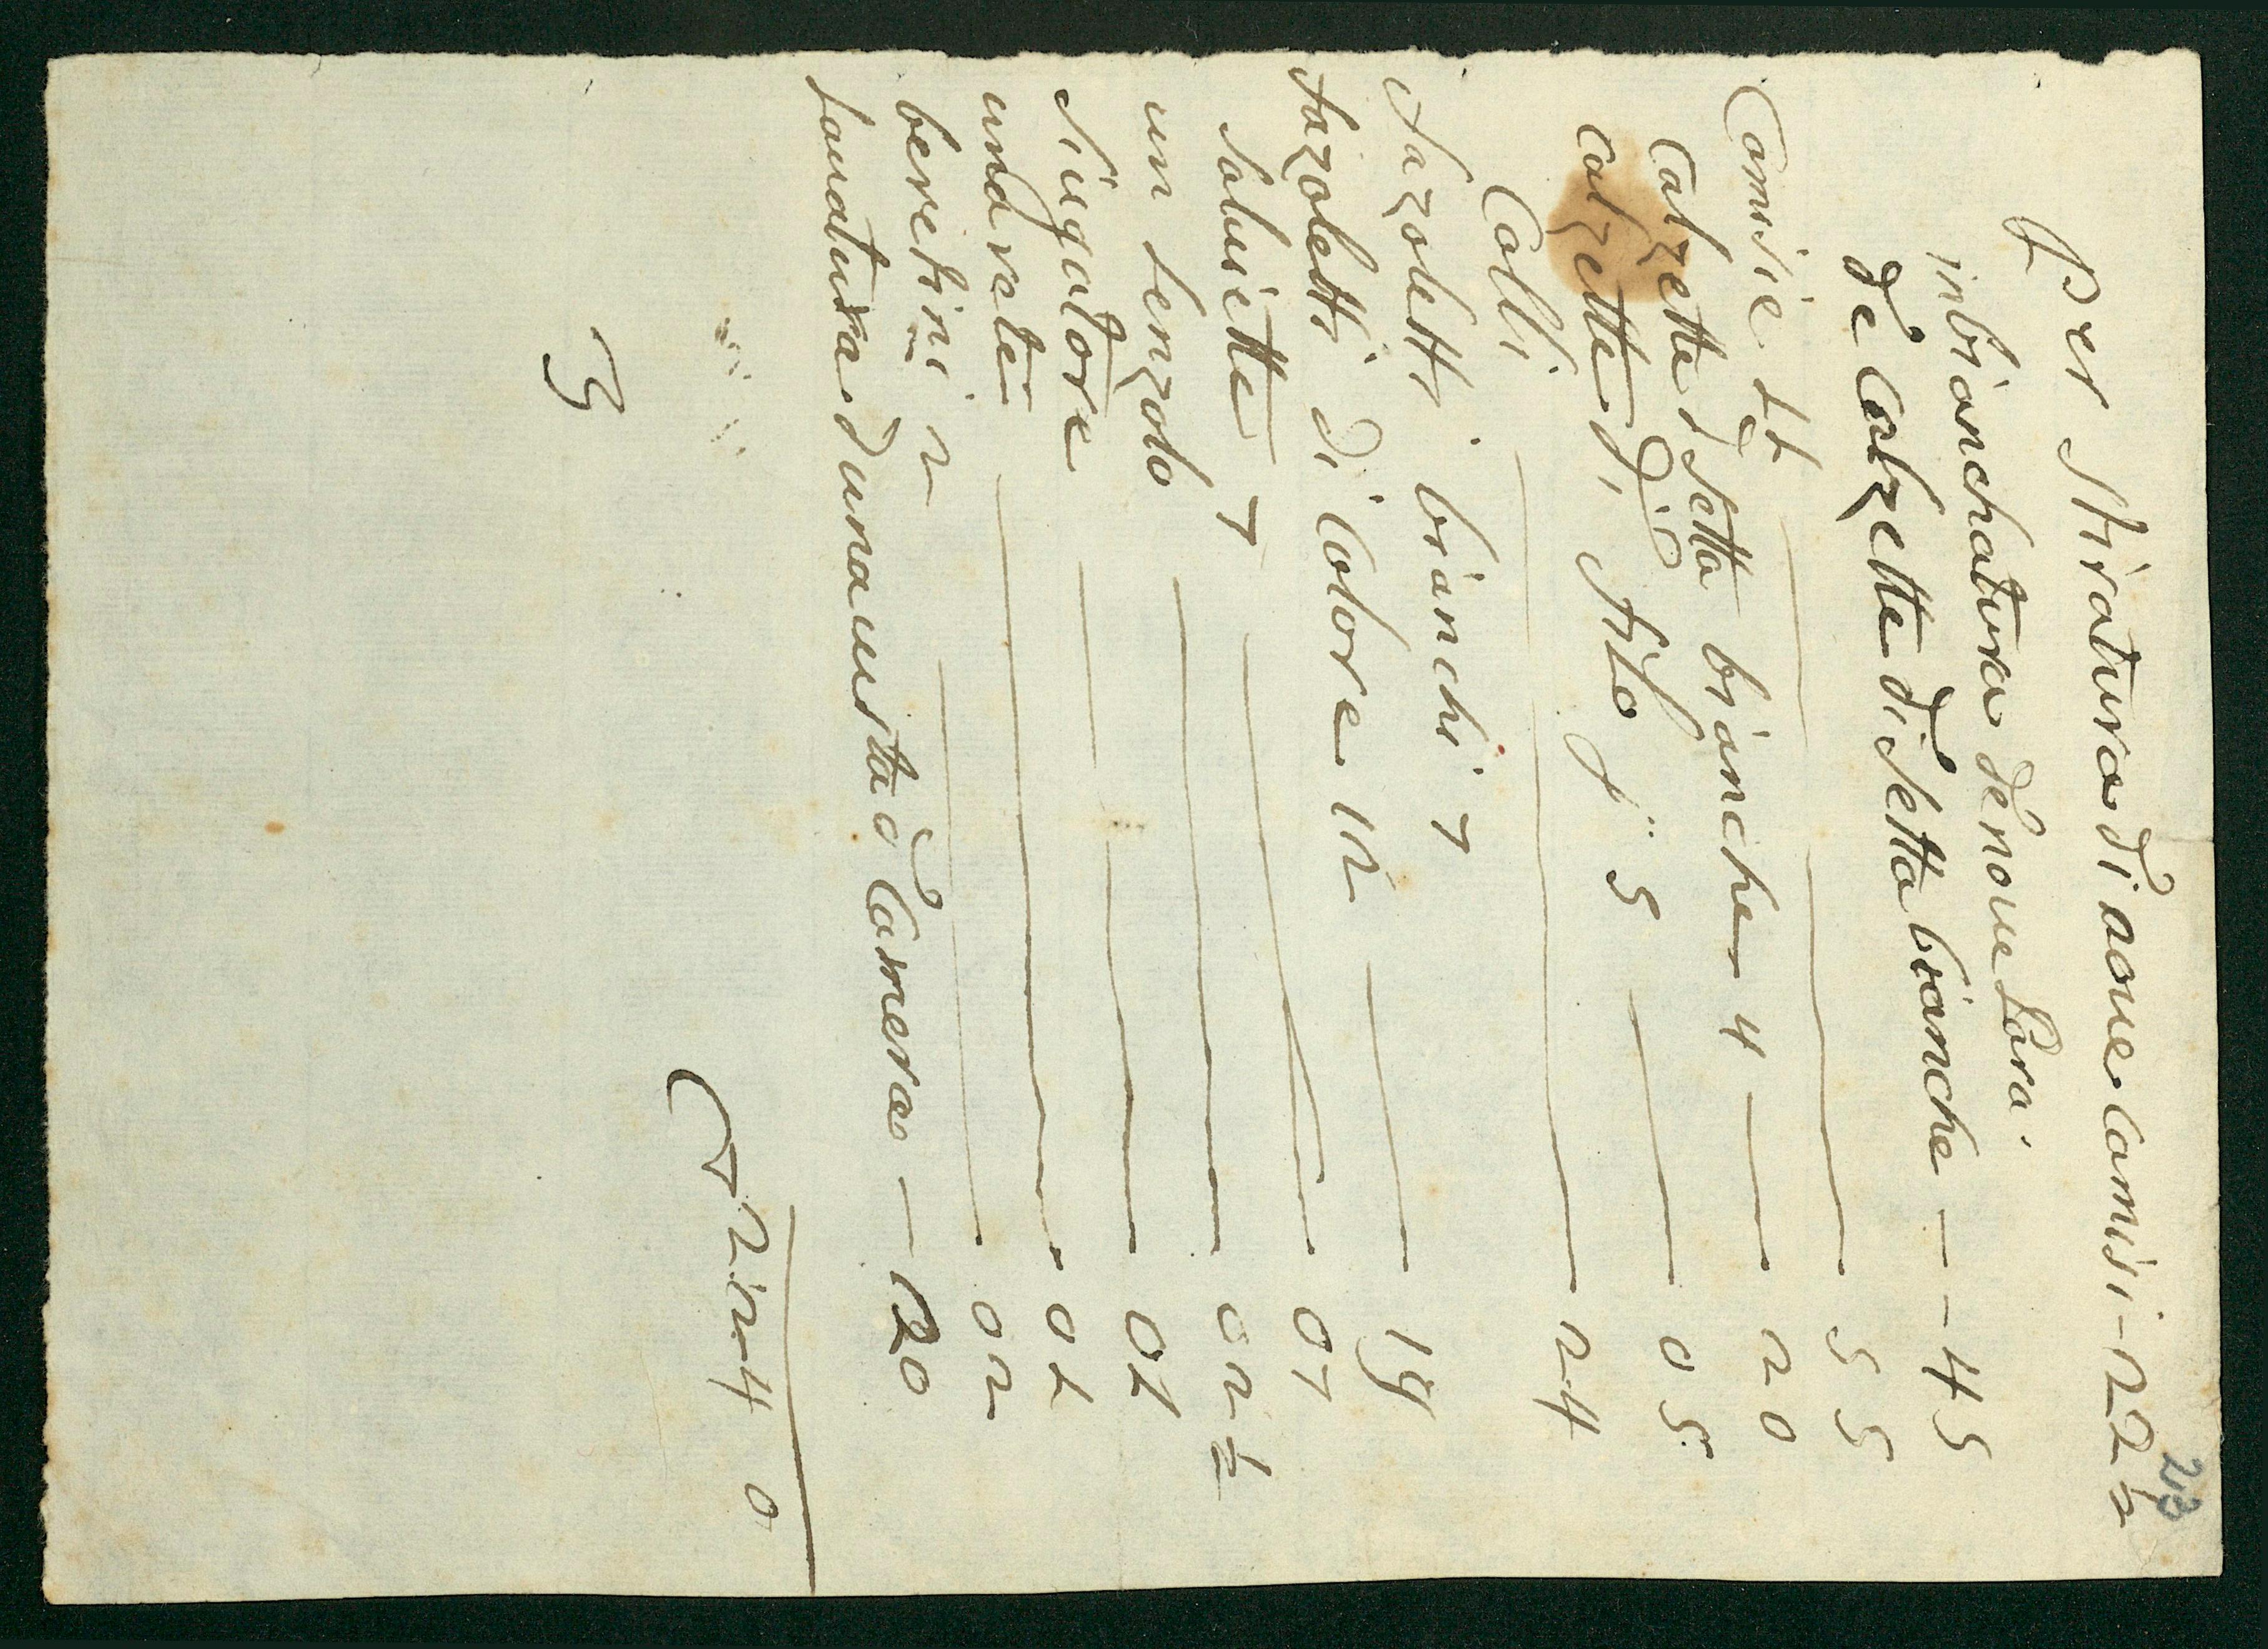 23
Per stiratura di noue Camisi - 22 1/2
inbianchatura de noue para
de Calzette di setta bianche -- 45
Camisie 11 — 55
Calzette d setta bianche 4 — 20
Calzette di filo p: 5 — 05
Colli — 24
fazoletti bianchi 7
fazoletti di Colore 12 — 19
Saluiette 7 — 07
un lenzolo — 02 1/2
siugatore — 01
una rete — 01
beretini 2 — 02
lauatura d una uesta d Camera — 120
212 4 0